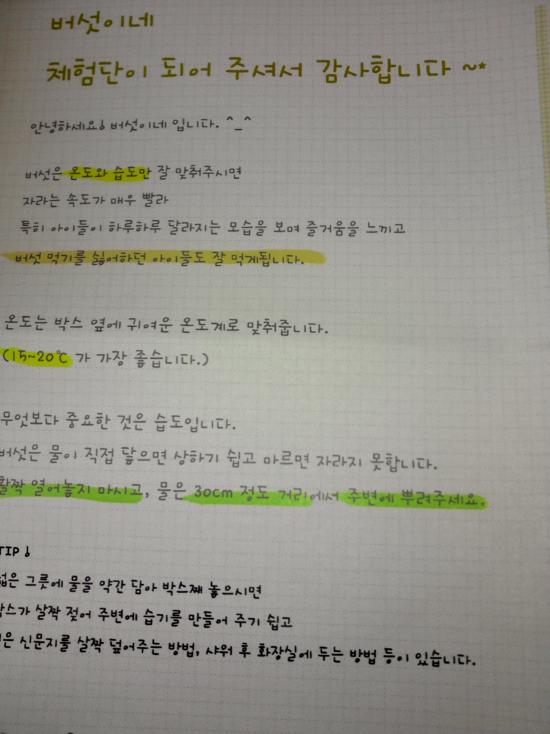 버섯이네
체험단이 되어 주셔서 감사합니다 ~*
안녕하세요! 버섯이네 입니다. ^_^
버섯은 온도와 습도만 잘 맞춰주시면
자라는 속도가 매우 빨라
특히 아이들이 하루하루 달라지는 모습을 보며 즐거움을 느끼고
버섯 먹기를 싫어하던 아이들도 잘 먹게됩니다.
온도는 박스 옆에 귀여운 온도계로 맞춰줍니다.
(15~20℃ 가 가장 좋습니다.)
무엇보다 중요한 것은 습도입니다.
버섯은 물이 직접 닿으면 상하기 쉽고 마르면 자라지 못합니다.
활짝 열어놓지 마시고, 물은 30cm 정도 거리에서 주변에 뿌려주세요.
TIP!
그릇에 물을 약간 담아 박스째 놓으시면
살짝 젖어 주변에 습기를 만들어 주기 쉽고
신문지를 살짝 덮어주는 방법, 샤워 후 화장실에 두는 방법 등이 있습니다.